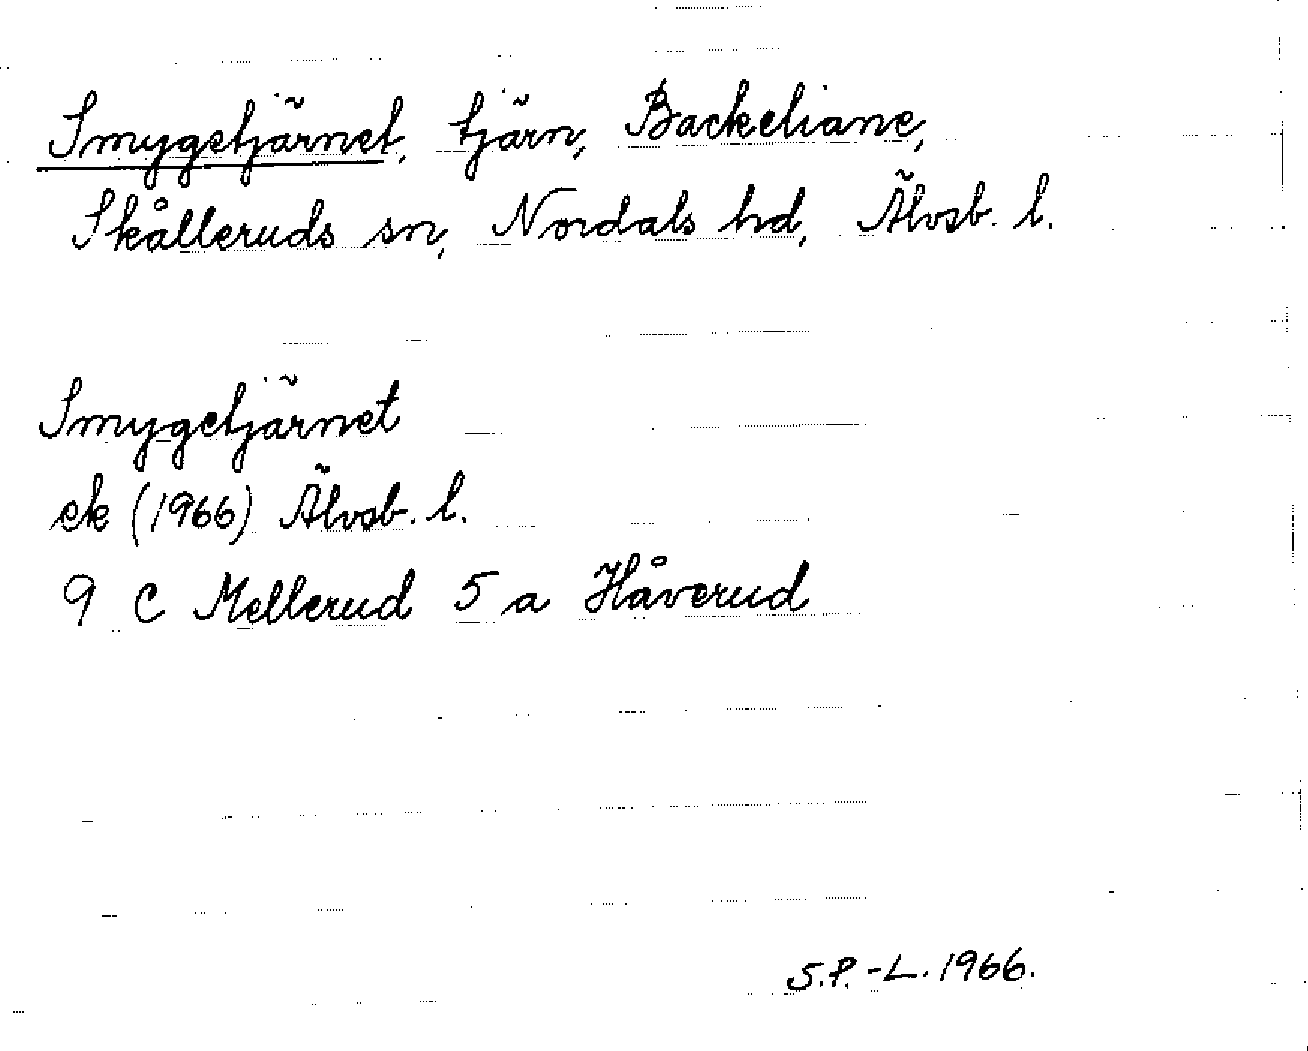 Smygetjärnet, tjärn, Backeliane,
Skålleruds sn, Nordals hd, Älvsb. l.
Smygetjärnet
ek (1966) Älvsb. l.
9 C Mellerud 5 a Håverud
S.P.-L. 1966.